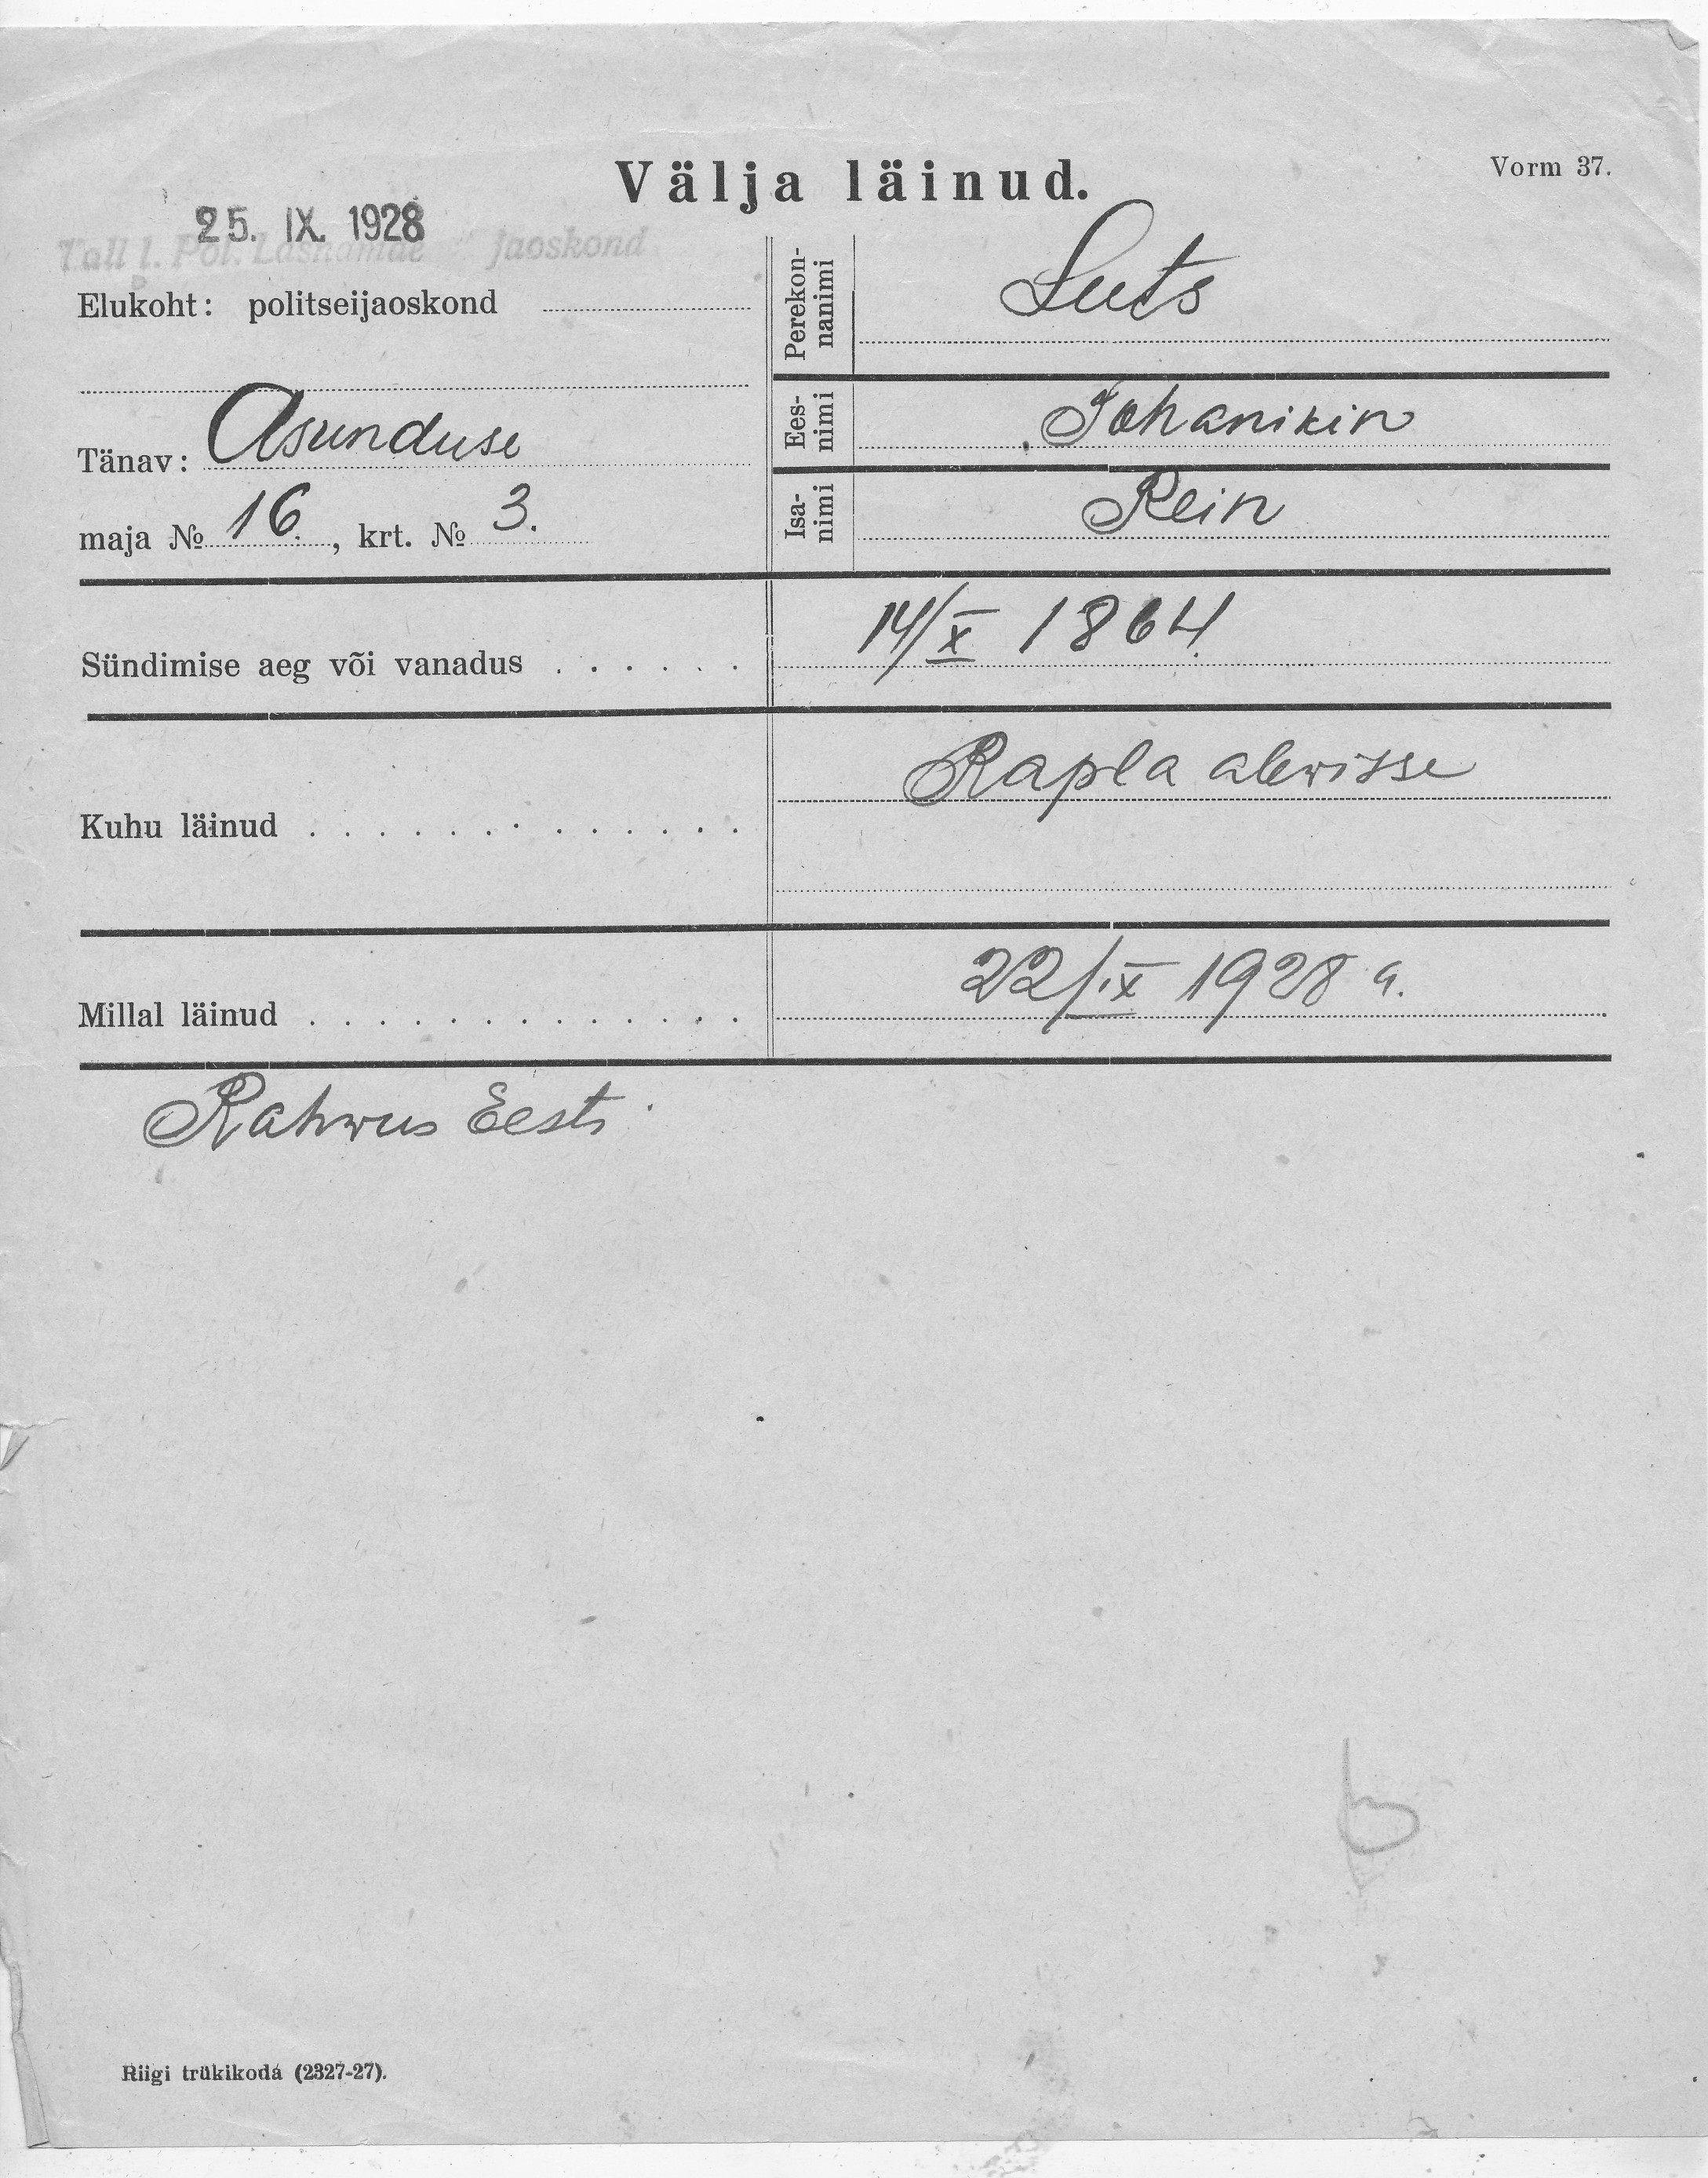 Välja läinud.
Vorm 37.
25. IX. 1928
Tall l. Pol. Lasnamäe jaoskond
Elukoht: politseijaoskond
Tänav: Asunduse
maja № 16., krt. № 3.
Perekon-
nanimi
Luts
Ees-
nimi
Johanikin
Isa-
nimi
Rein
Sündimise aeg või vanadus . . . . . . 14/X 1864.
Kuhu läinud . . . . . . . . . . . . . Rapla alewisse
Millal läinud . . . . . . . . . . . . . 22/IX 1928 a.
Rahwus Eesti
Riigi trükikoda (2327-27).